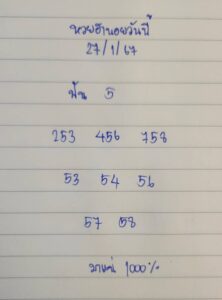 หวยฮานอยวันนี้
27/1/67
ฟัน 5
253 456 758
53 54 56
57 58
มาแน่ 1000%